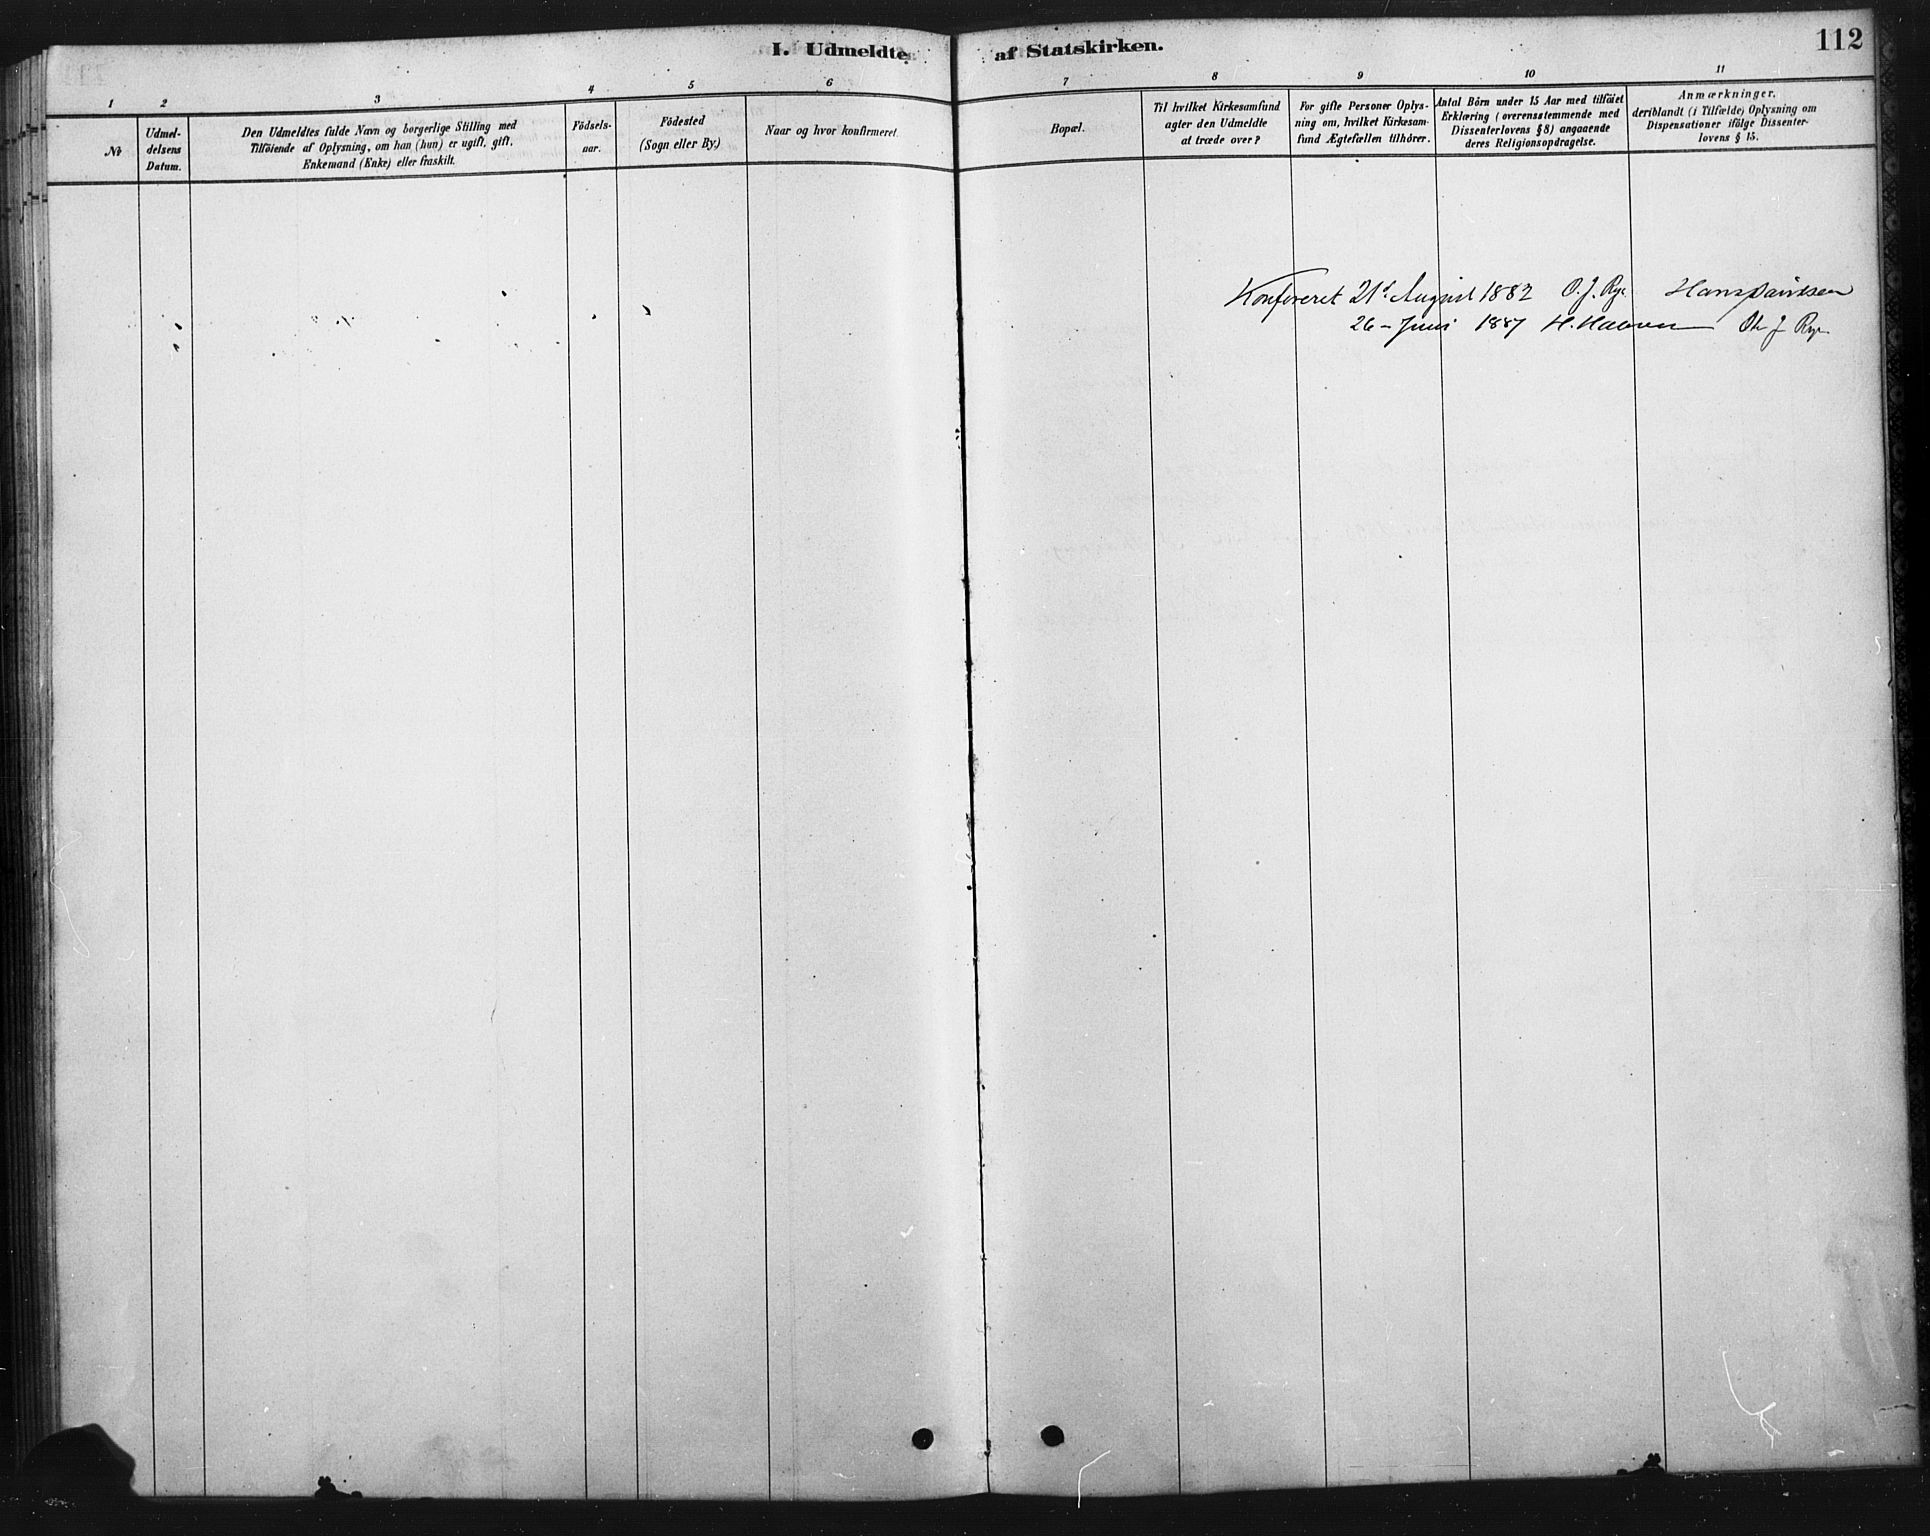 I. Udmeldte af Statskirken.
112
1 2 3 4 5 6 7 8 9 10 11
№
Udmel-
delsens
Datum.
Den Udmeldtes fulde Navn og borgerlige Stilling med
Tilföiende af Oplysning, om han (hun) er ugift, gift,
Enkemand (Enke) eller fraskilt.
Födsels-
aar.
Födested
(Sogn eller By.)
Naar og hvor konfirmeret.
Bopæl.
Til hvilket Kirkesamfund
agter den Udmeldte
at træde over?
For gifte Personer Oplys-
ning om, hvilket Kirkesam-
fund Ægtefællen tilhörer.
Antal Börn under 15 Aar med tilföiet
Erklæring (overensstemmende med
Dissenterlovens § 8) angaaende
deres Religionsopdragelse.
Anmærkninger,
deriblandt (i Tilfælde) Oplysning om
Dispensationer ifölge Dissenter-
lovens § 15.
Konfereret 21d August 1882 O. J. Rye
26 – Juni 1887 J Rye